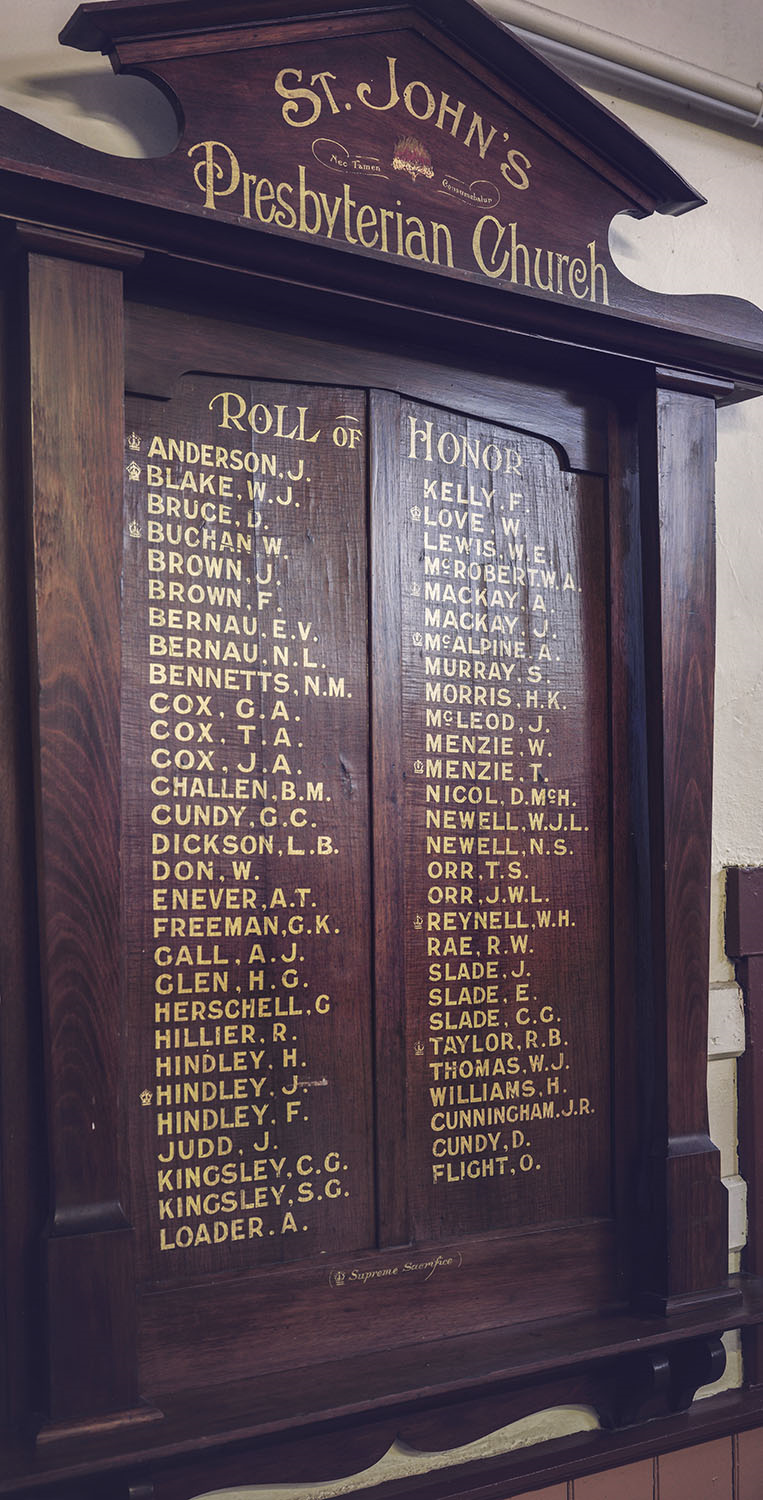 ST. JOHN'S
Nec Tamen
Consumebatur
Presbyterian Church
ROLL OF HONOR
ANDERSON, J.
BLAKE, W.J.
BRUCE, D.
BUCHAN W.
BROWN, J.
BROWN, F.
BERNAU, E.V.
BERNAU, N.L.
BENNETTS, N.M.
COX, G.A.
COX, T.A.
COX, J.A.
CHALLEN, B.M.
CUNDY, G.C.
DICKSON, L.B.
DON, W.
ENEVER, A.T.
FREEMAN, G.K.
GALL, A.J.
GLEN, H.G.
HERSCHELL, G
HILLIER, R.
HINDLEY, H.
HINDLEY, J.
HINDLEY, F.
JUDD, J.
KINGSLEY, C.G.
KINGSLEY, S.G.
LOADER. A.
KELLY, F.
LOVE, W.
LEWIS, W.E.
McROBERT, W.A.
MACKAY, A.
MACKAY, J.
McALPINE, A.
MURRAY, S.
MORRIS, H.K.
McLEOD, J.
MENZIE, W.
MENZIE, T.
NICOL, D.McH.
NEWELL, W.J.L.
NEWELL, N.S.
ORR, T.S.
ORR, J.W.L.
REYNELL, W.H.
RAE, R.W.
SLADE, J.
SLADE, E.
SLADE, C.G.
TAYLOR, R.B.
THOMAS, W.J.
WILLIAMS, H.
CUNNINGHAM, J.R.
CUNDY, D.
FLIGHT, O.
( Supreme Sacrifice )